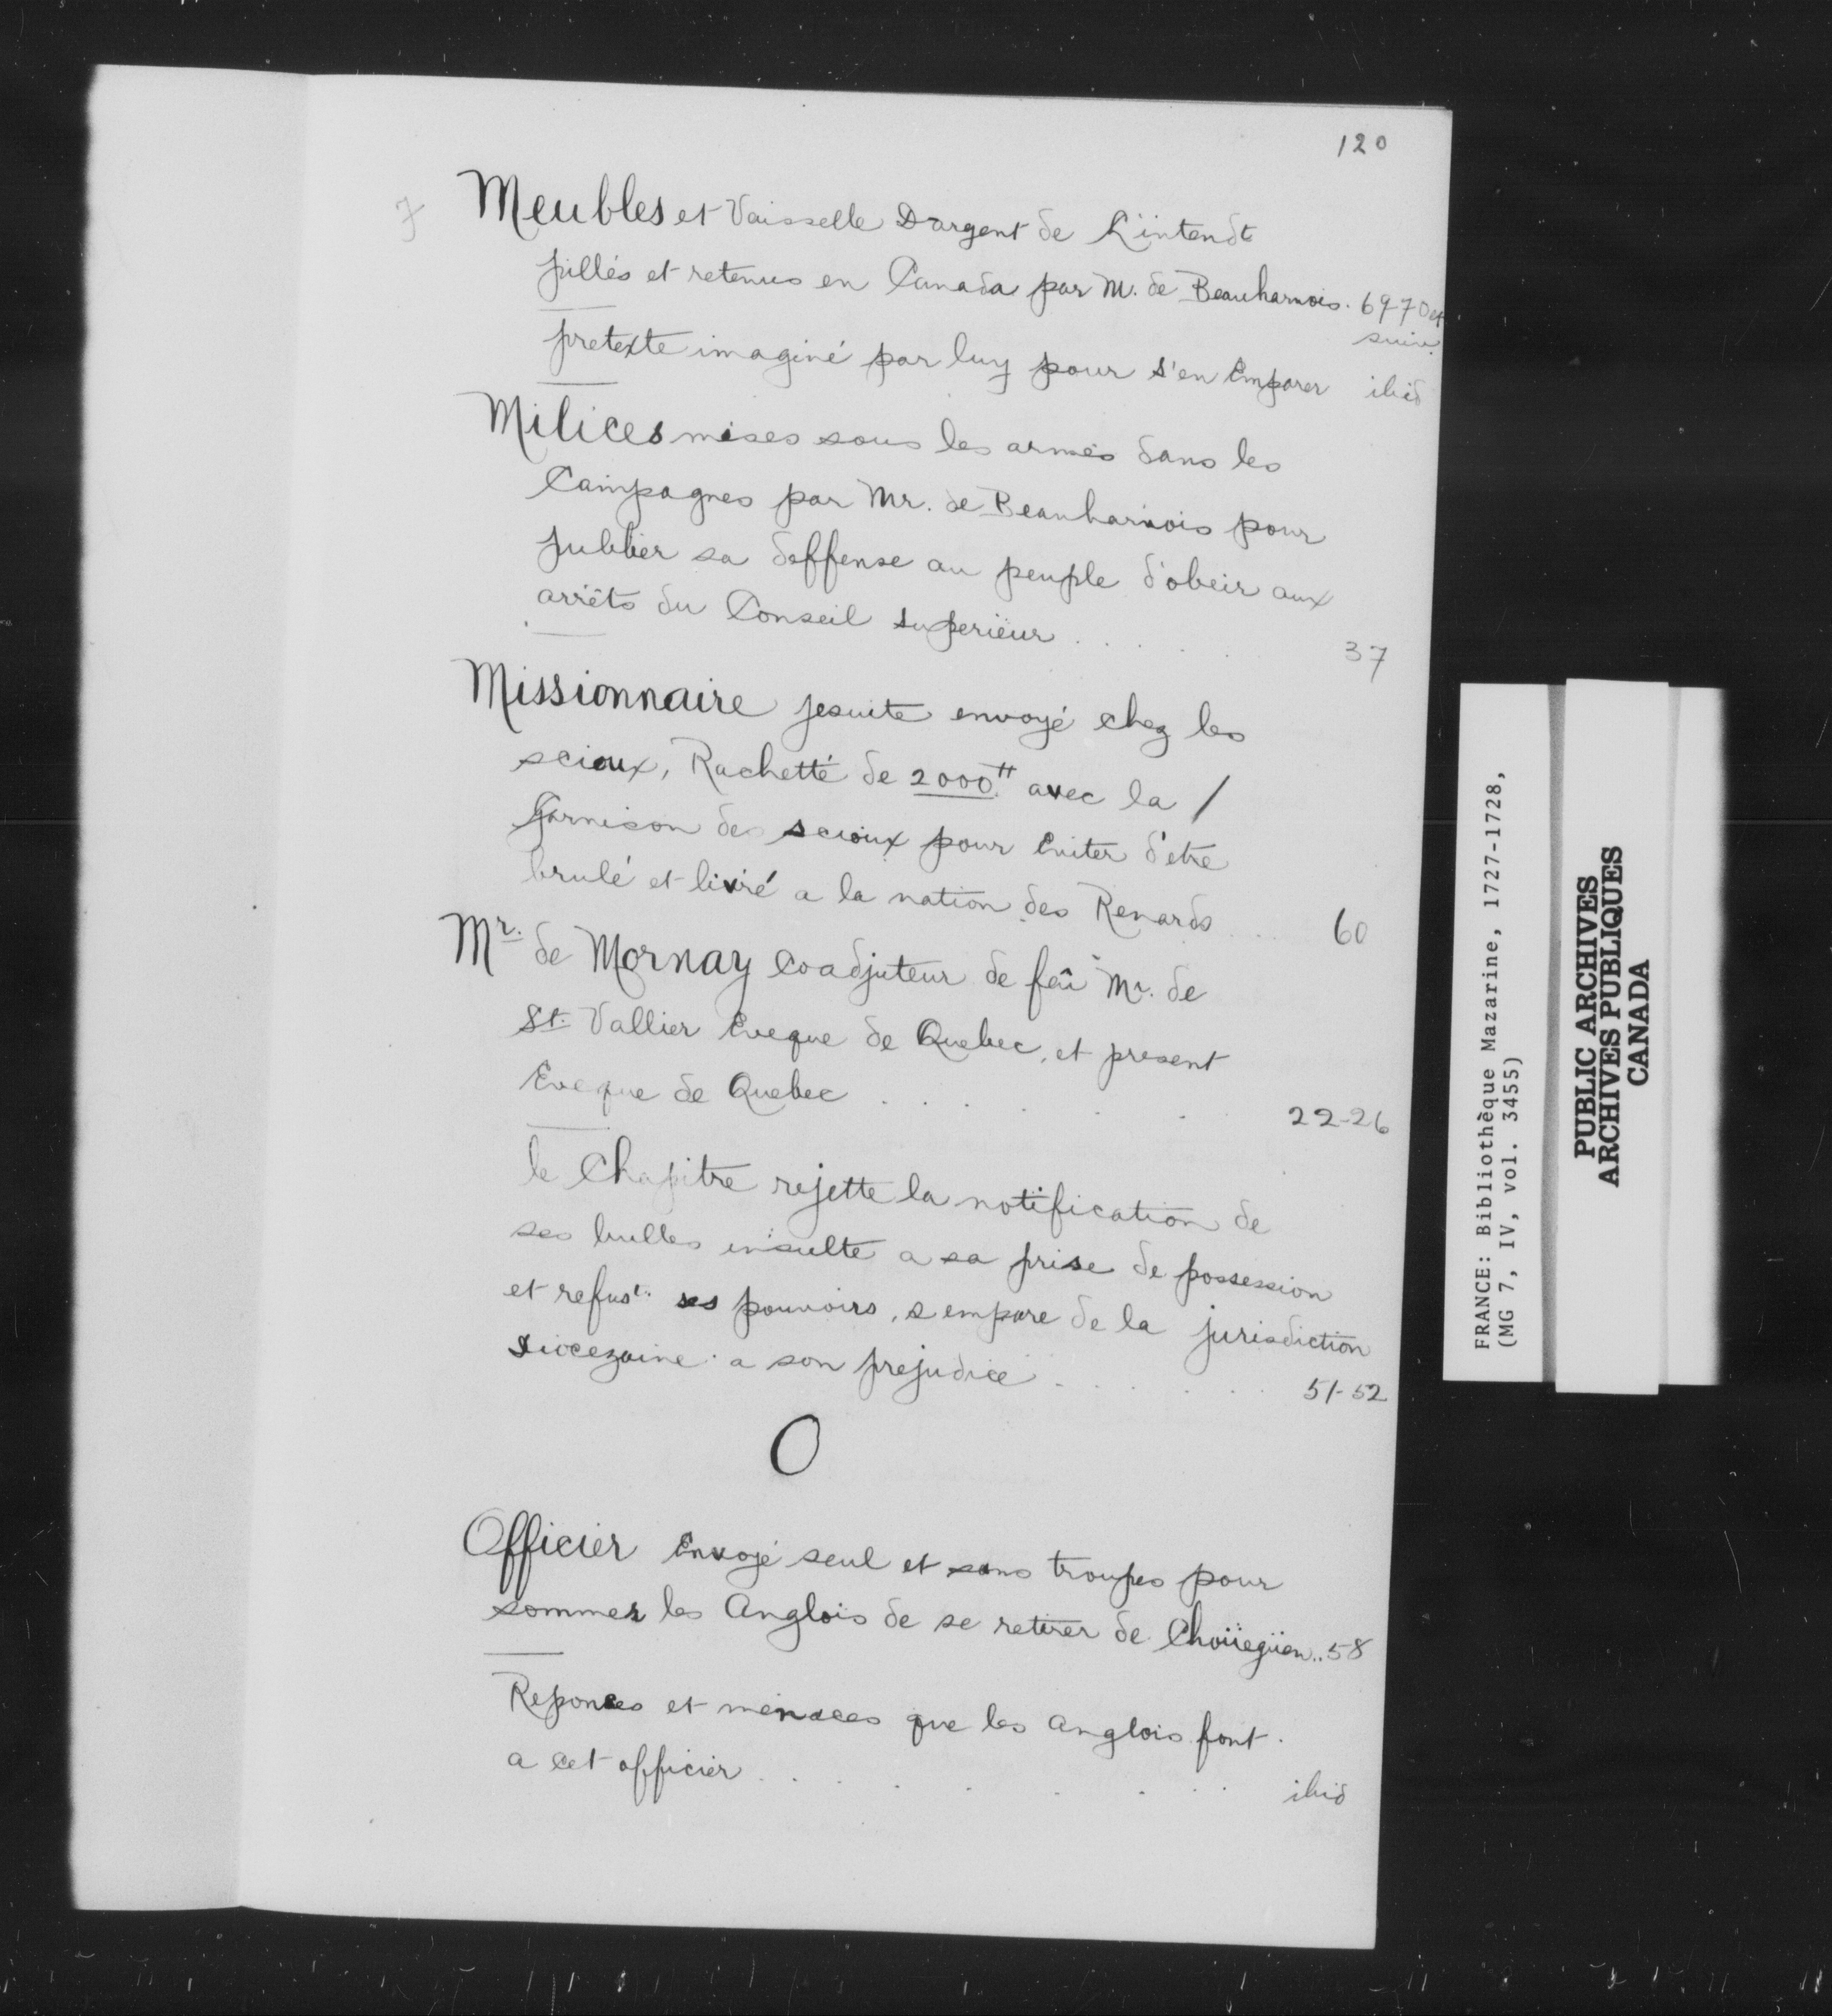 120
Meubles et Vaisselle Dargent de L'intendt
pillés et retenus en Canada par M. de Beauharnois. 69-70 et
suiv.
pretexte imaginé par luy pour s'en Emparer ibid
Milices mises sous les armes dans les
Campagnes par Mr. de Beauharnois pour
publier sa deffense au peuple d'obeir aux
arrêts du Conseil superieur . . . . . 37
Missionnaire jesuite envoyé chez les
scioux, Rachetté de 2000.tt avec la /
Garnison des scioux pour Eviter d'etre
brulé et livré a la nation des Renards . . . 60
Mr. de Mornay Coadjuteur de feû Mr. de
St. Vallier Eveque de Quebec, et present
Eveque de Quebec . . . . . 22-26
le Chapitre rejette la notification de
ses bulles insulte a sa prise de possession
et refust. ses pouvoirs, s empare de la jurisdiction
diocezaine a son prejudice . . . . . . 51-52
O
Officier Envoyé seul et sans troupes pour
sommer les Anglois de se retirer de Choüegüen.. 58
Reponses et menaces que les anglois font
a cet officier . . . . . . ibid
FRANCE: Bibliothèque Mazarine, 1727-1728,
(MG 7, IV, vol. 3455)
PUBLIC ARCHIVES
ARCHIVES PUBLIQUES
CANADA